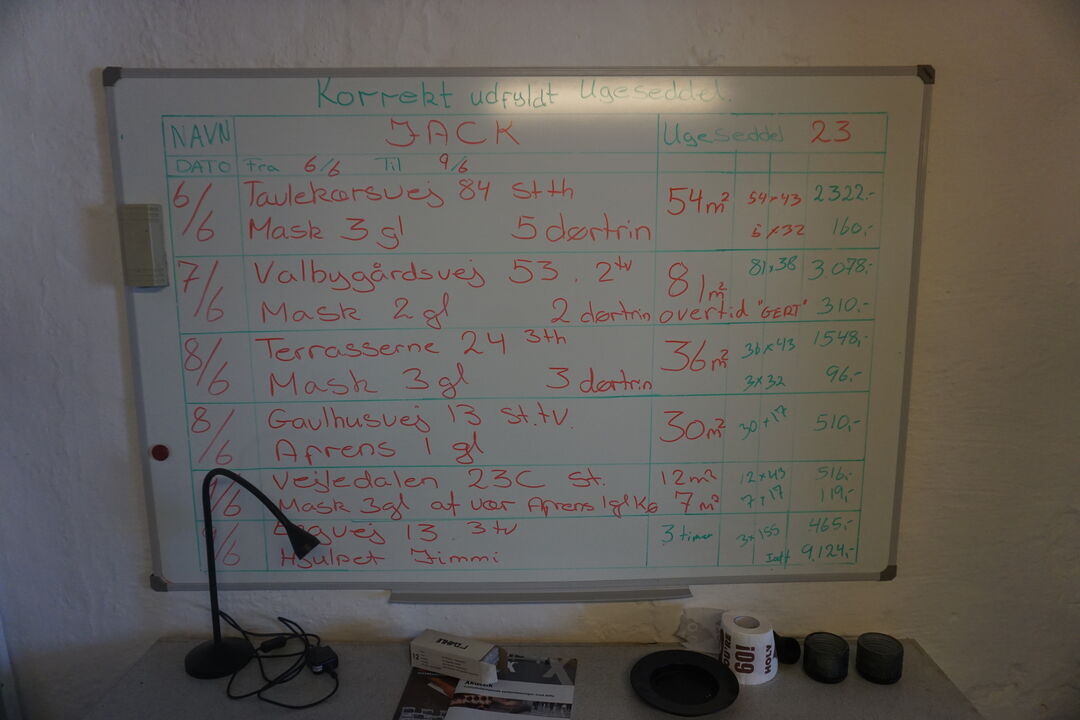 Korrekt udfyldt Ugeseddel.
NAVN JACK Ugeseddel 23
DATO Fra 6/6 Til 9/6
6/6 Taulekærsvej 84 st th 54m² 54×43 2322.-
Mask 3 gl 5 dørtrin 5×32 160,-
7/6 Valbygårdsvej 53. 2tv 81m² 81×38 3.078,-
Mask 2 gl 2 dørtrin overtid "GERT" 310,-
8/6 Terrasserne 24 3th 36m² 36×43 1548,-
Mask 3 gl 3 dørtrin 3×32 96,-
8/6 Gaulhusvej 13 st.tv. 30m² 30+17 510,-
Afrens 1 gl
/6 Vejledalen 23C st. 12m² 12×43 516,-
Mask 3gl af vær Afrens 1gl Kø 7m² 7×17 119,-
/6 13. 3tv 3 timer 3×155 465,-
Hjulpet Jimmi Ialt 9.124,-
12
HOLY